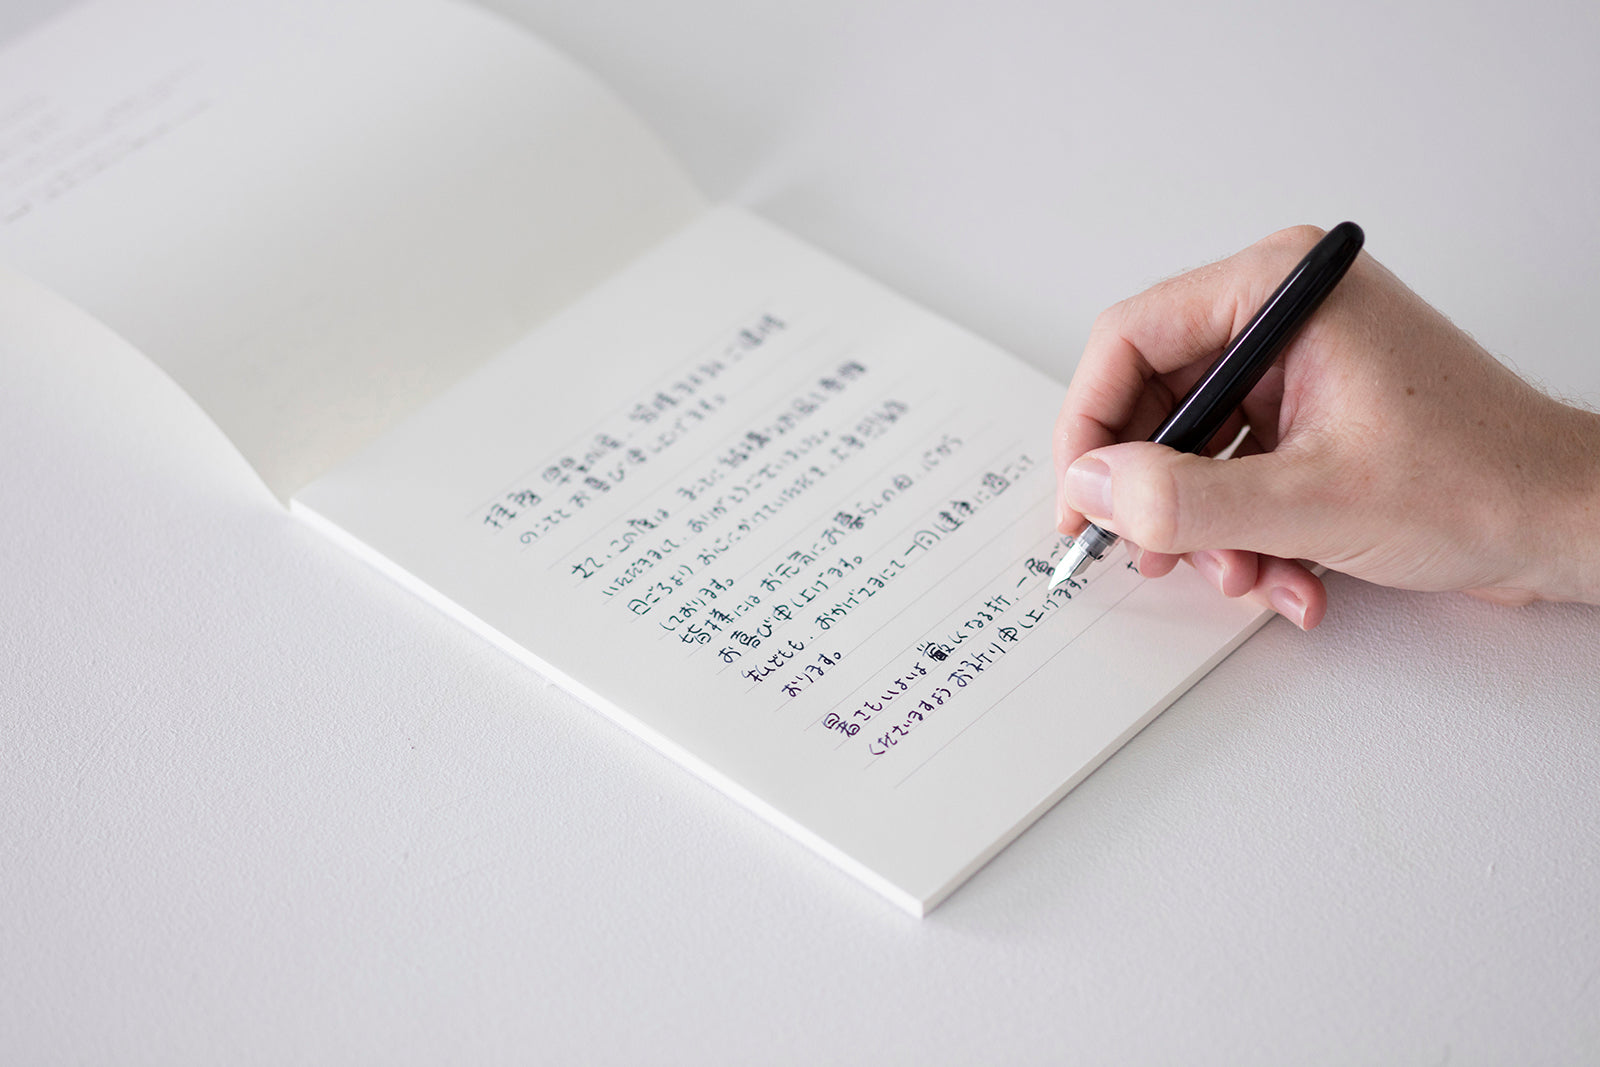 拝啓 盛夏の候、皆様ますますご清祥
のこととお喜び申し上げます。
さて、この度は まことに結構なお品を
いただきまして、ありがとうございました。
日ごろより お心にかけていただき、
しております。
皆様には お元気にお暮らしの由、心から
お喜び申し上げます。
私どもも、おかげさまにて 一同 健康に過ごして
おります。
暑さもいよいよ厳しくなる折、一層ご
くださいますよう お祈り申し上げます。